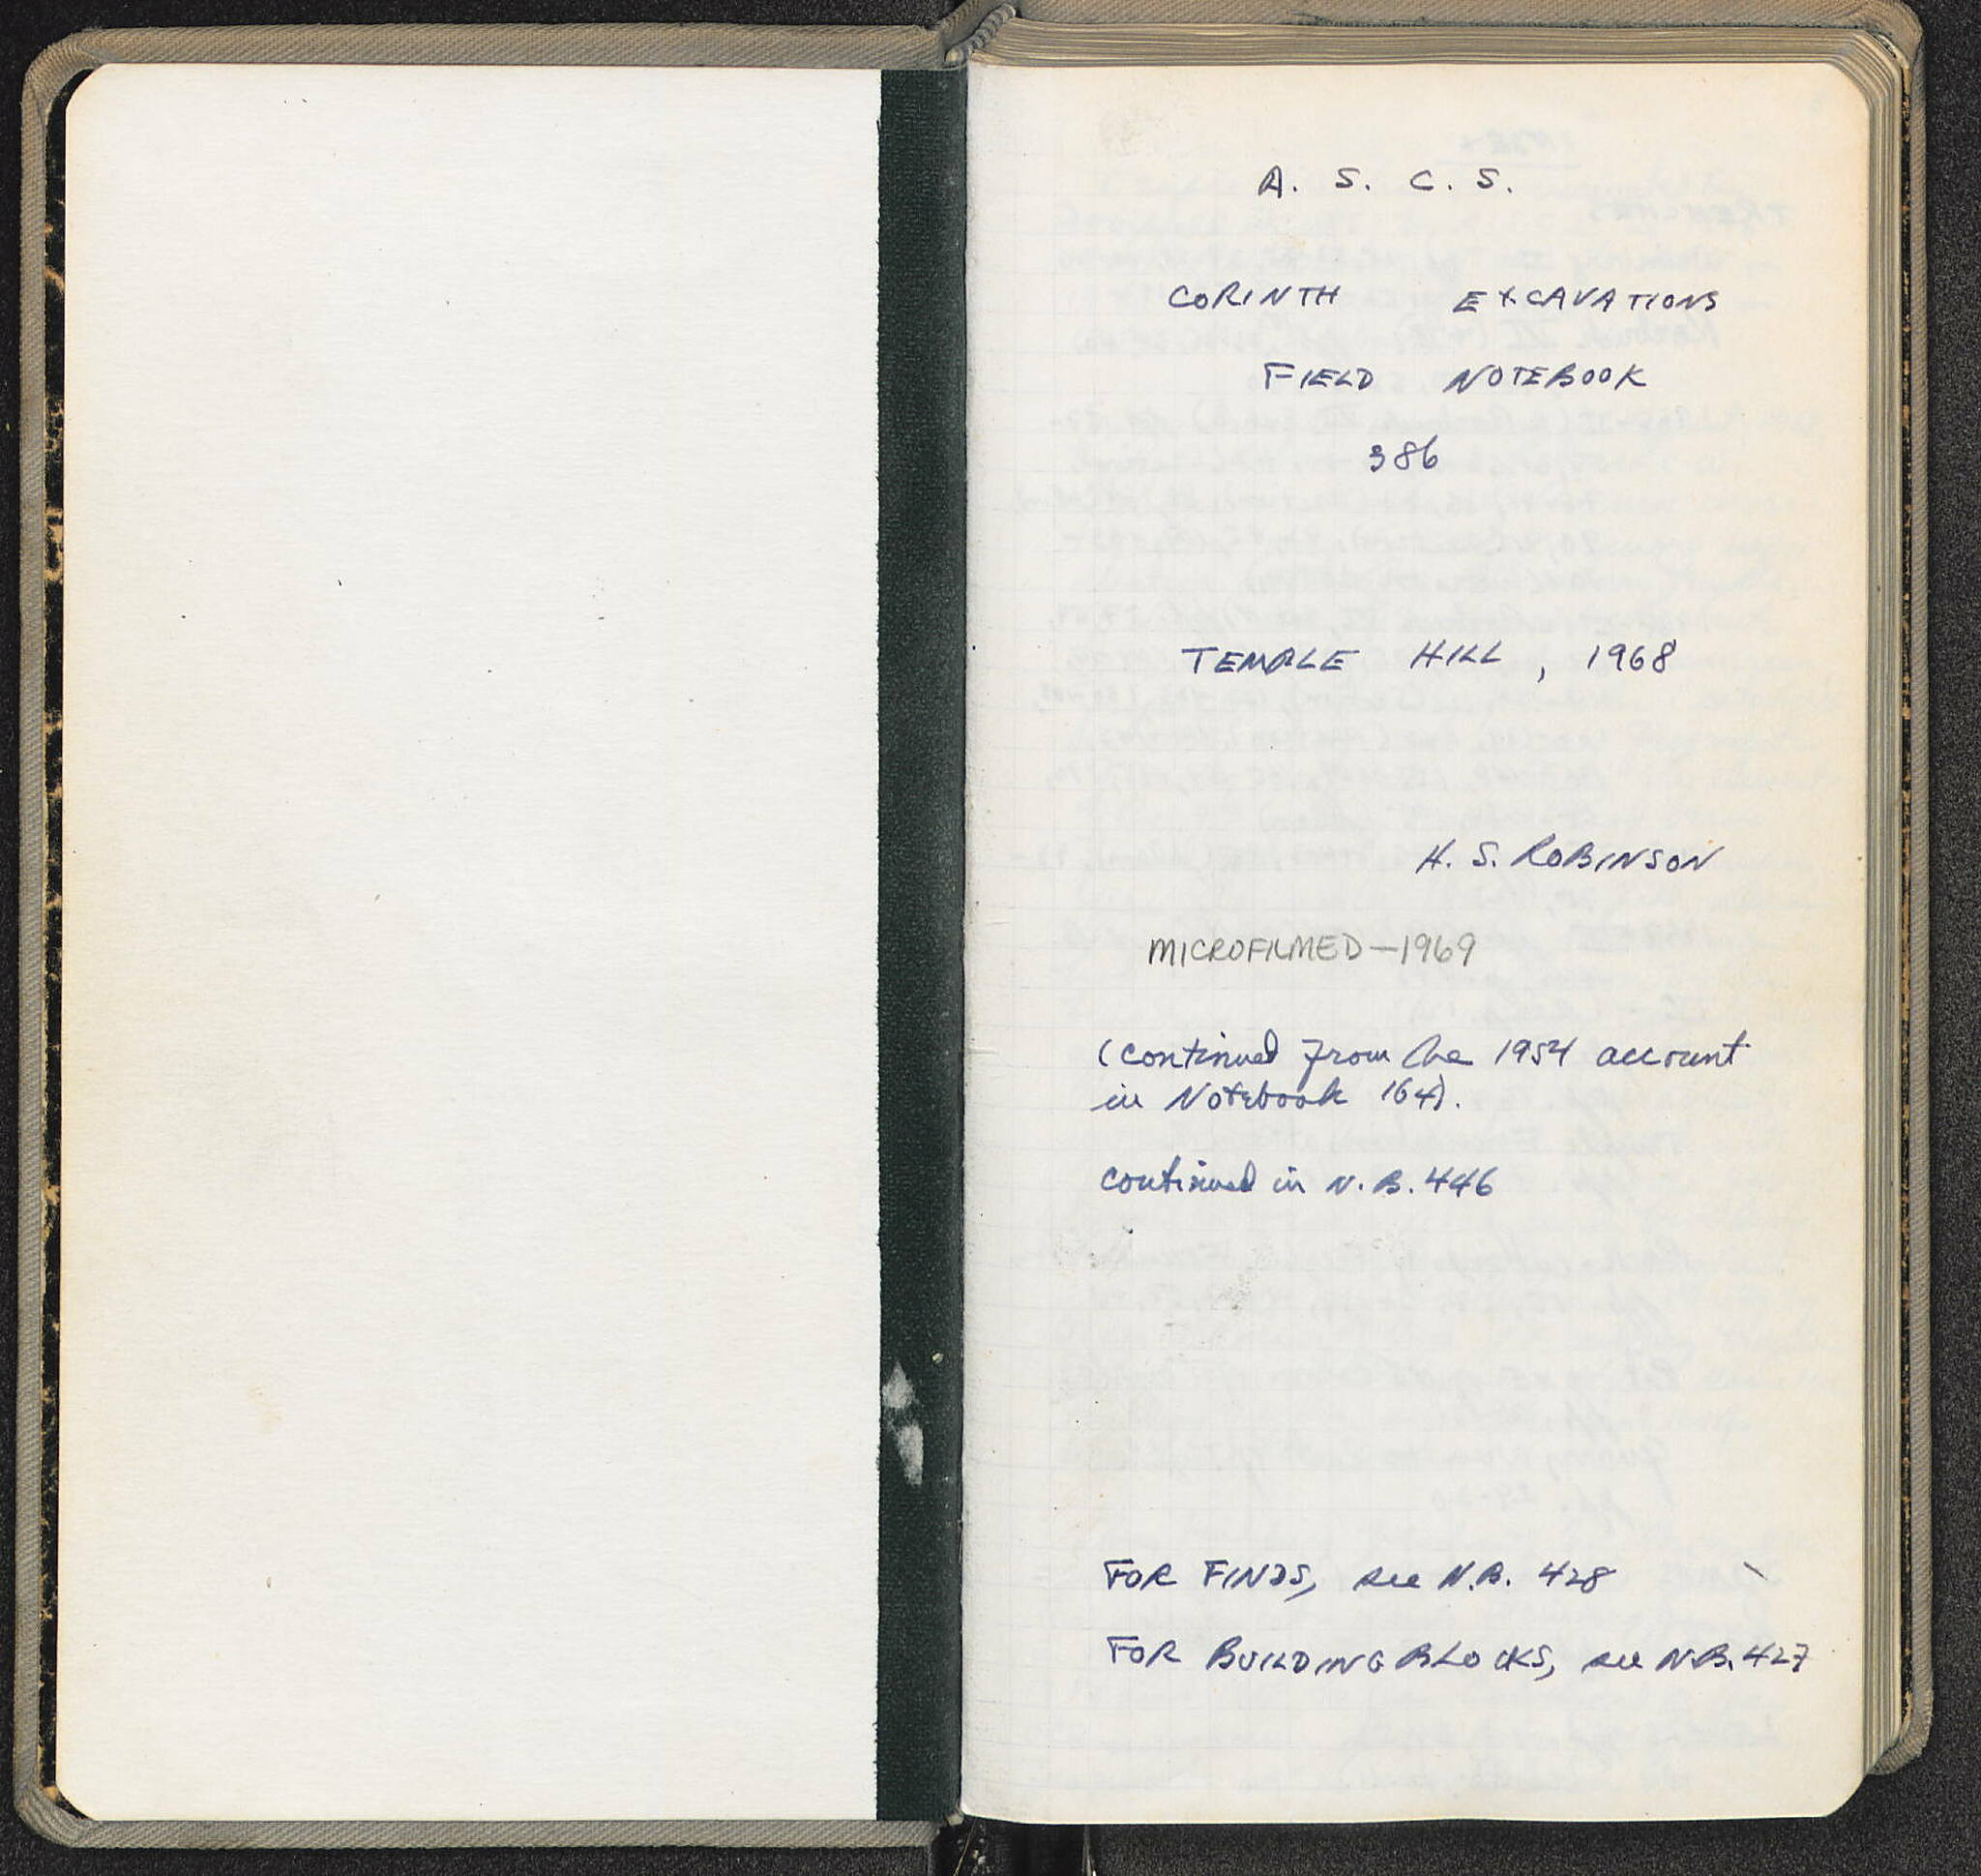 A. S. C. S.
CORINTH EXCAVATIONS
FIELD NOTEBOOK
386
TEMPLE HILL, 1968
H. S. ROBINSON
MICROFILMED—1969
(continued from the 1954 account
in Notebook 164).
continued in N.B. 446
FOR FINDS, see N.B. 428
FOR BUILDING BLOCKS, see N.B. 427